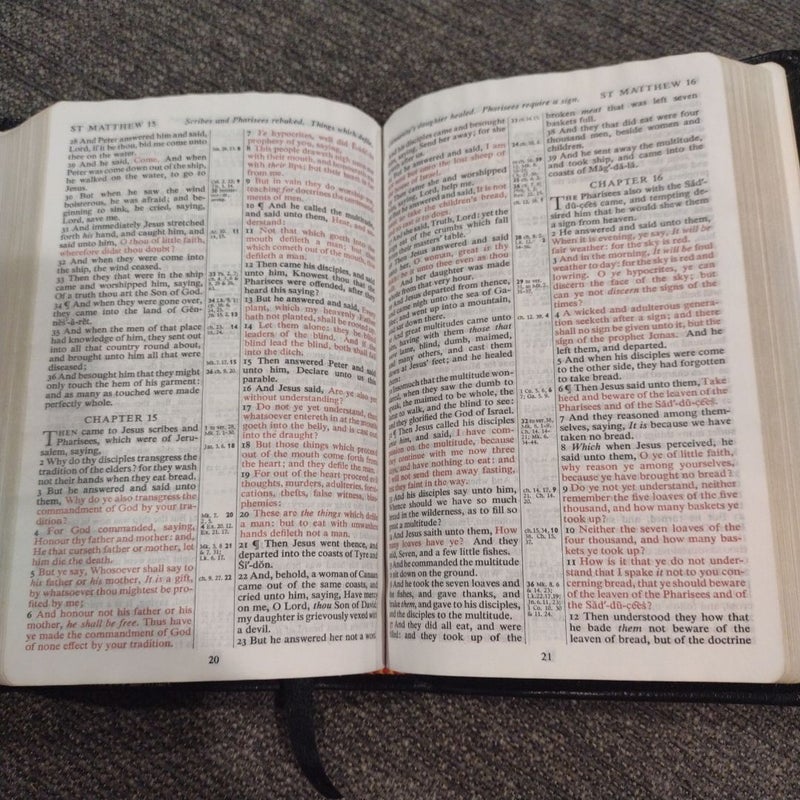 ST MATTHEW 15
Scribes and Pharisees rebuked. Things which defile
28 And Peter answered him and said,
Lord, if it be thou, bid me come unto
thee on the water.
29 And he said, Come. And when
Peter was come down out of the ship,
he walked on the water, to go to
Jesus.
30 But when he saw the wind
boisterous, he was afraid; and be-
ginning to sink, he cried, saying,
Lord, save me.
31 And immediately Jesus stretched
forth his hand, and caught him, and
said unto him, O thou of little faith,
wherefore didst thou doubt?
32 And when they were come into
the ship, the wind ceased.
33 Then they that were in the ship
came and worshipped him, saying,
Of a truth thou art the Son of God.
34 ¶ And when they were gone over,
they came into the land of Gĕn-
nĕs'-ă-rĕt.
35 And when the men of that place
had knowledge of him, they sent out
into all that country round about,
and brought unto him all that were
diseased;
36 And besought him that they might
only touch the hem of his garment:
and as many as touched were made
perfectly whole.
CHAPTER 15
THEN came to Jesus scribes and
Pharisees, which were of Jeru-
salem, saying,
2 Why do thy disciples transgress the
tradition of the elders? for they wash
not their hands when they eat bread.
3 But he answered and said unto
them, Why do ye also transgress the
commandment of God by your tra-
dition?
4 For God commanded, saying,
Honour thy father and mother: and,
He that curseth father or mother, let
him die the death.
5 But ye say, Whosoever shall say to
his father or his mother, It is a gift,
by whatsoever thou mightest be pro-
fited by me;
6 And honour not his father or his
mother, he shall be free. Thus have
ye made the commandment of God
of none effect by your tradition.
7 Ye hypocrites, well did
prophesy of you, saying,
8 This people draweth nigh
with their mouth, and
with their lips; but their heart is
from me.
9 But in vain they do worship me,
teaching for doctrines the command-
ments of men.
10 ¶ And he called the multitude,
and said unto them, Hear, and un-
derstand:
11 Not that which goeth into
mouth defileth a man; but
which cometh out of the mouth,
defileth a man.
12 Then came his disciples, and said
unto him, Knowest thou that the
Pharisees were offended, after they
heard this saying?
13 But he answered and said, Every
plant, which my heavenly Father
hath not planted, shall be rooted
14 Let them alone: they be blind
leaders of the blind. And if
blind lead the blind, both shall fall
into the ditch.
15 Then answered Peter and said
unto him, Declare unto us this
parable.
16 And Jesus said, Are ye also yet
without understanding?
17 Do not ye yet understand, that
whatsoever entereth in at the mouth
goeth into the belly, and is cast out
into the draught?
18 But those things which proceed
out of the mouth come forth from
the heart; and they defile the man.
19 For out of the heart proceed evil
thoughts, murders, adulteries, forni-
cations, thefts, false witness, blas-
phemies:
20 These are the things which defile
a man: but to eat with unwashen
hands defileth not a man.
21 ¶ Then Jesus went thence, and
departed into the coasts of Tyre and
Sī'-dŏn.
22 And, behold, a woman of Canaan
came out of the same coasts, and
cried unto him, saying, Have mercy
on me, O Lord, thou Son of David;
my daughter is grievously vexed with
a devil.
23 But he answered her not a word.
20
daughter healed. Pharisees require a sign.
ST MATTHEW 16
his disciples came and besought
saying, Send her away; for she
after us.
he answered and said, I am
sent but unto the lost sheep of
came she and worshipped
Lord, help me.
answered and said, It is not
take the children's bread,
it to dogs.
she said, Truth, Lord: yet the
of the crumbs which fall
masters' table.
Jesus answered and said
O woman, great is thy
be it unto thee even as thou
And her daughter was made
that very hour.
Jesus departed from thence,
came nigh unto the sea of Ga-
and went up into a mountain,
sat down there.
great multitudes came unto
having with them those that
lame, blind, dumb, maimed,
many others, and cast them
at Jesus' feet; and he healed
Insomuch that the multitude won-
dered, when they saw the dumb to
speak, the maimed to be whole, the
to walk, and the blind to see:
and they glorified the God of Israel.
¶ Then Jesus called his disciples
him, and said, I have com-
passion on the multitude, because
continue with me now three
and have nothing to eat: and
will not send them away fasting,
they faint in the way.
And his disciples say unto him,
Whence should we have so much
bread in the wilderness, as to fill so
great a multitude?
And Jesus saith unto them, How
many loaves have ye? And they
said, Seven, and a few little fishes.
And he commanded the multitude
to sit down on the ground.
And he took the seven loaves and
the fishes, and gave thanks, and
brake them, and gave to his disciples,
and the disciples to the multitude.
And they did all eat, and were
filled: and they took up of the
broken meat that was left seven
baskets full.
38 And they that did eat were four
thousand men, beside women and
children.
39 And he sent away the multitude,
and took ship, and came into the
coasts of Măg'-dă-lă.
CHAPTER 16
THE Pharisees also with the Săd'-
dū-cēēs came, and tempting de-
sired him that he would shew them
a sign from heaven.
2 He answered and said unto them,
When it is evening, ye say, It will be
fair weather: for the sky is red.
3 And in the morning, It will be foul
weather to day: for the sky is red and
lowring. O ye hypocrites, ye can
discern the face of the sky; but
can ye not discern the signs of the
times?
4 A wicked and adulterous genera-
tion seeketh after a sign; and there
shall no sign be given unto it, but the
sign of the prophet Jonas. And he
left them, and departed.
5 And when his disciples were come
to the other side, they had forgotten
to take bread.
6 ¶ Then Jesus said unto them, Take
heed and beware of the leaven of the
Pharisees and of the Săd'-dū-cēēs.
7 And they reasoned among them-
selves, saying, It is because we have
taken no bread.
8 Which when Jesus perceived, he
said unto them, O ye of little faith,
why reason ye among yourselves,
because ye have brought no bread?
9 Do ye not yet understand, neither
remember the five loaves of the five
thousand, and how many baskets ye
took up?
10 Neither the seven loaves of the
four thousand, and how many bas-
kets ye took up?
11 How is it that ye do not under-
stand that I spake it not to you con-
cerning bread, that ye should beware
of the leaven of the Pharisees and of
the Săd'-dū-cēēs?
12 Then understood they how that
he bade them not beware of the
leaven of bread, but of the doctrine
21